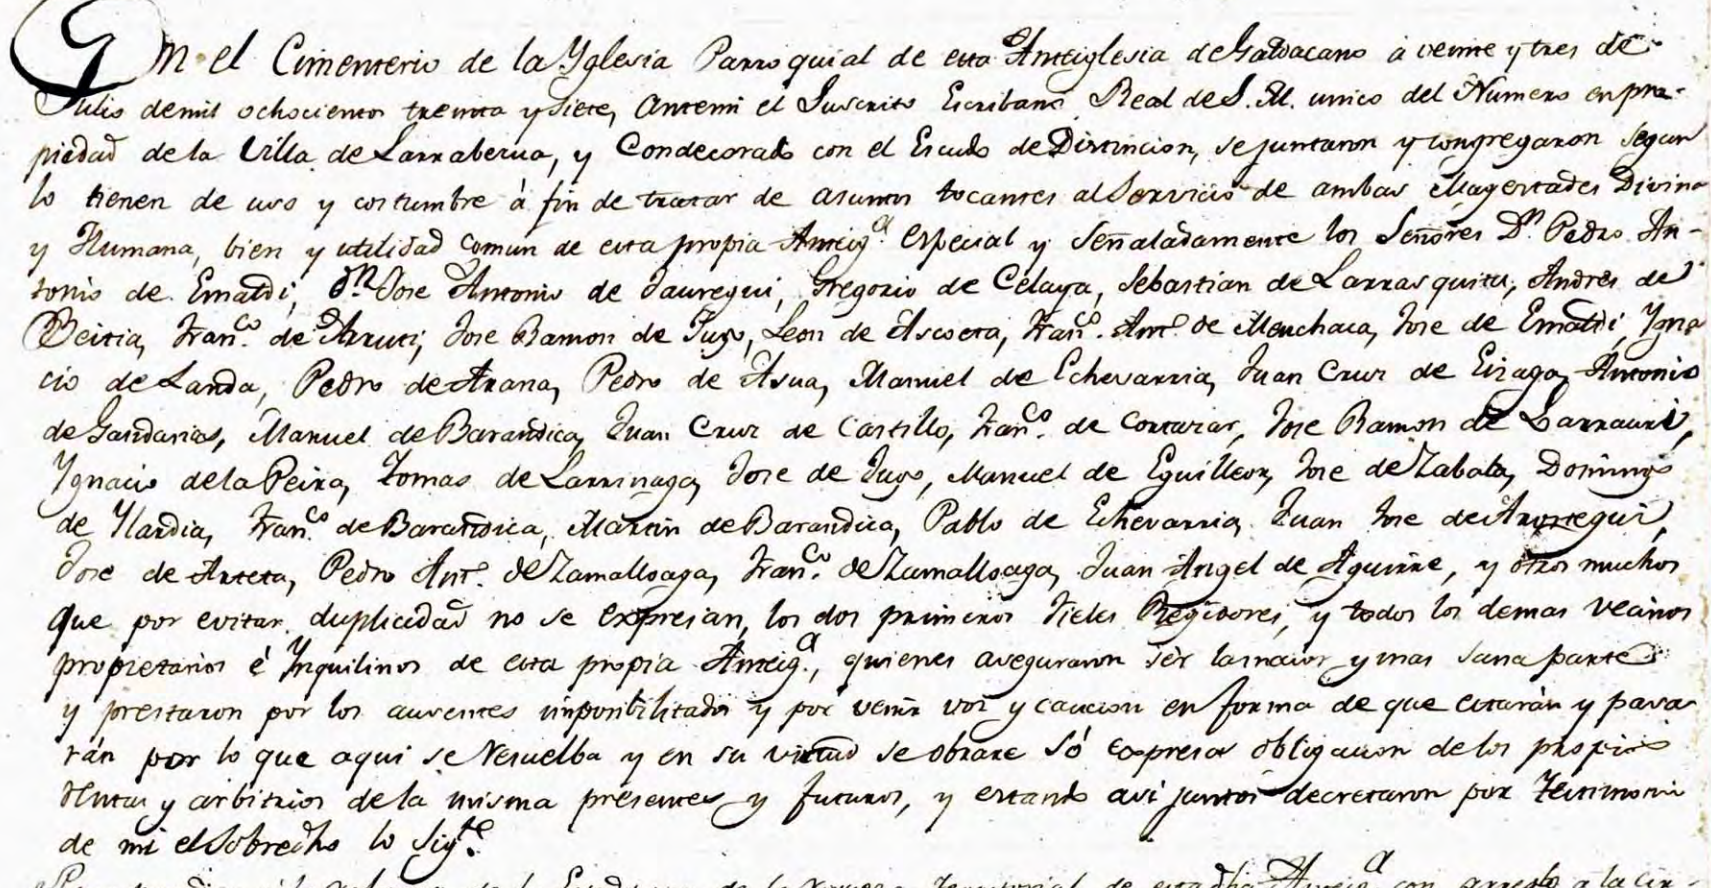 En el Cimenterio de la Yglesia Parroquial de esta Anteiglesia de Galdacano á veinte y tres de
Julio de mil ochocientos treinta y siete, ante mi el Suscrito Escribano Real de S. M. unico del Numero en pro-
piedad de la Villa de Larrabezua, y Condecorado con el Escudo de Distincion, se juntaron y congregaron segun
lo tienen de uso y costumbre á fin de tratar de asuntos tocantes al Servicio de ambas Magestades Divina
y Humana, bien y utilidad comun de esta propia Anteig.ª especial y señaladamente los Señores D.n Pedro An-
tonio de Ematdi, D.n Jose Antonio de Jauregui, Gregorio de Celaya, Sebastian de Larrasquitu, Andres de
Beitia, Fran.co de Arruti, Jose Ramon de Jugo, Leon de Ascoeta, Fran.co Ant.o de Menchaca, Jose de Ematdi, Ygna
cio de Landa, Pedro de Arana, Pedro de Asua, Manuel de Echevarria, Juan Cruz de Eizaga, Antonio
de Gandarias, Manuel de Barandica, Juan Cruz de Castillo, Fran.co de Cortazar, Jose Ramon de Larrauri,
Ygnacio de la Peira, Tomas de Larrinaga, Jose de Jugo, Manuel de Eguilleor, Jose de Zabala, Domingo
de Ylardia, Fran.co de Barandica, Martin de Barandica, Pablo de Echevarria, Juan Jose de
Jose de Arteta, Pedro Ant.o de Zamalloaga, Fran.co de Zamalloaga, Juan Angel de Aguirre, y otros muchos
que por evitar duplicidad no se expresan, los dos primeros Fieles Regidores, y todos los demas vecinos
propietarios é Ynquilinos de esta propia Anteig.ª, quienes aseguraron ser la maior y mas sana parte
y prestaron por los ausentes imposibilitados y por venir voz y caucion en forma de que estarán y pasa
rán por lo que aqui se Resuelba y en su virtud se obrare só expresa obligacion de los propios
Rentas y arbitrios de la misma presentes y futuros, y estando asi juntos decretaron por testimonio
de mi el sobredho lo sig.te